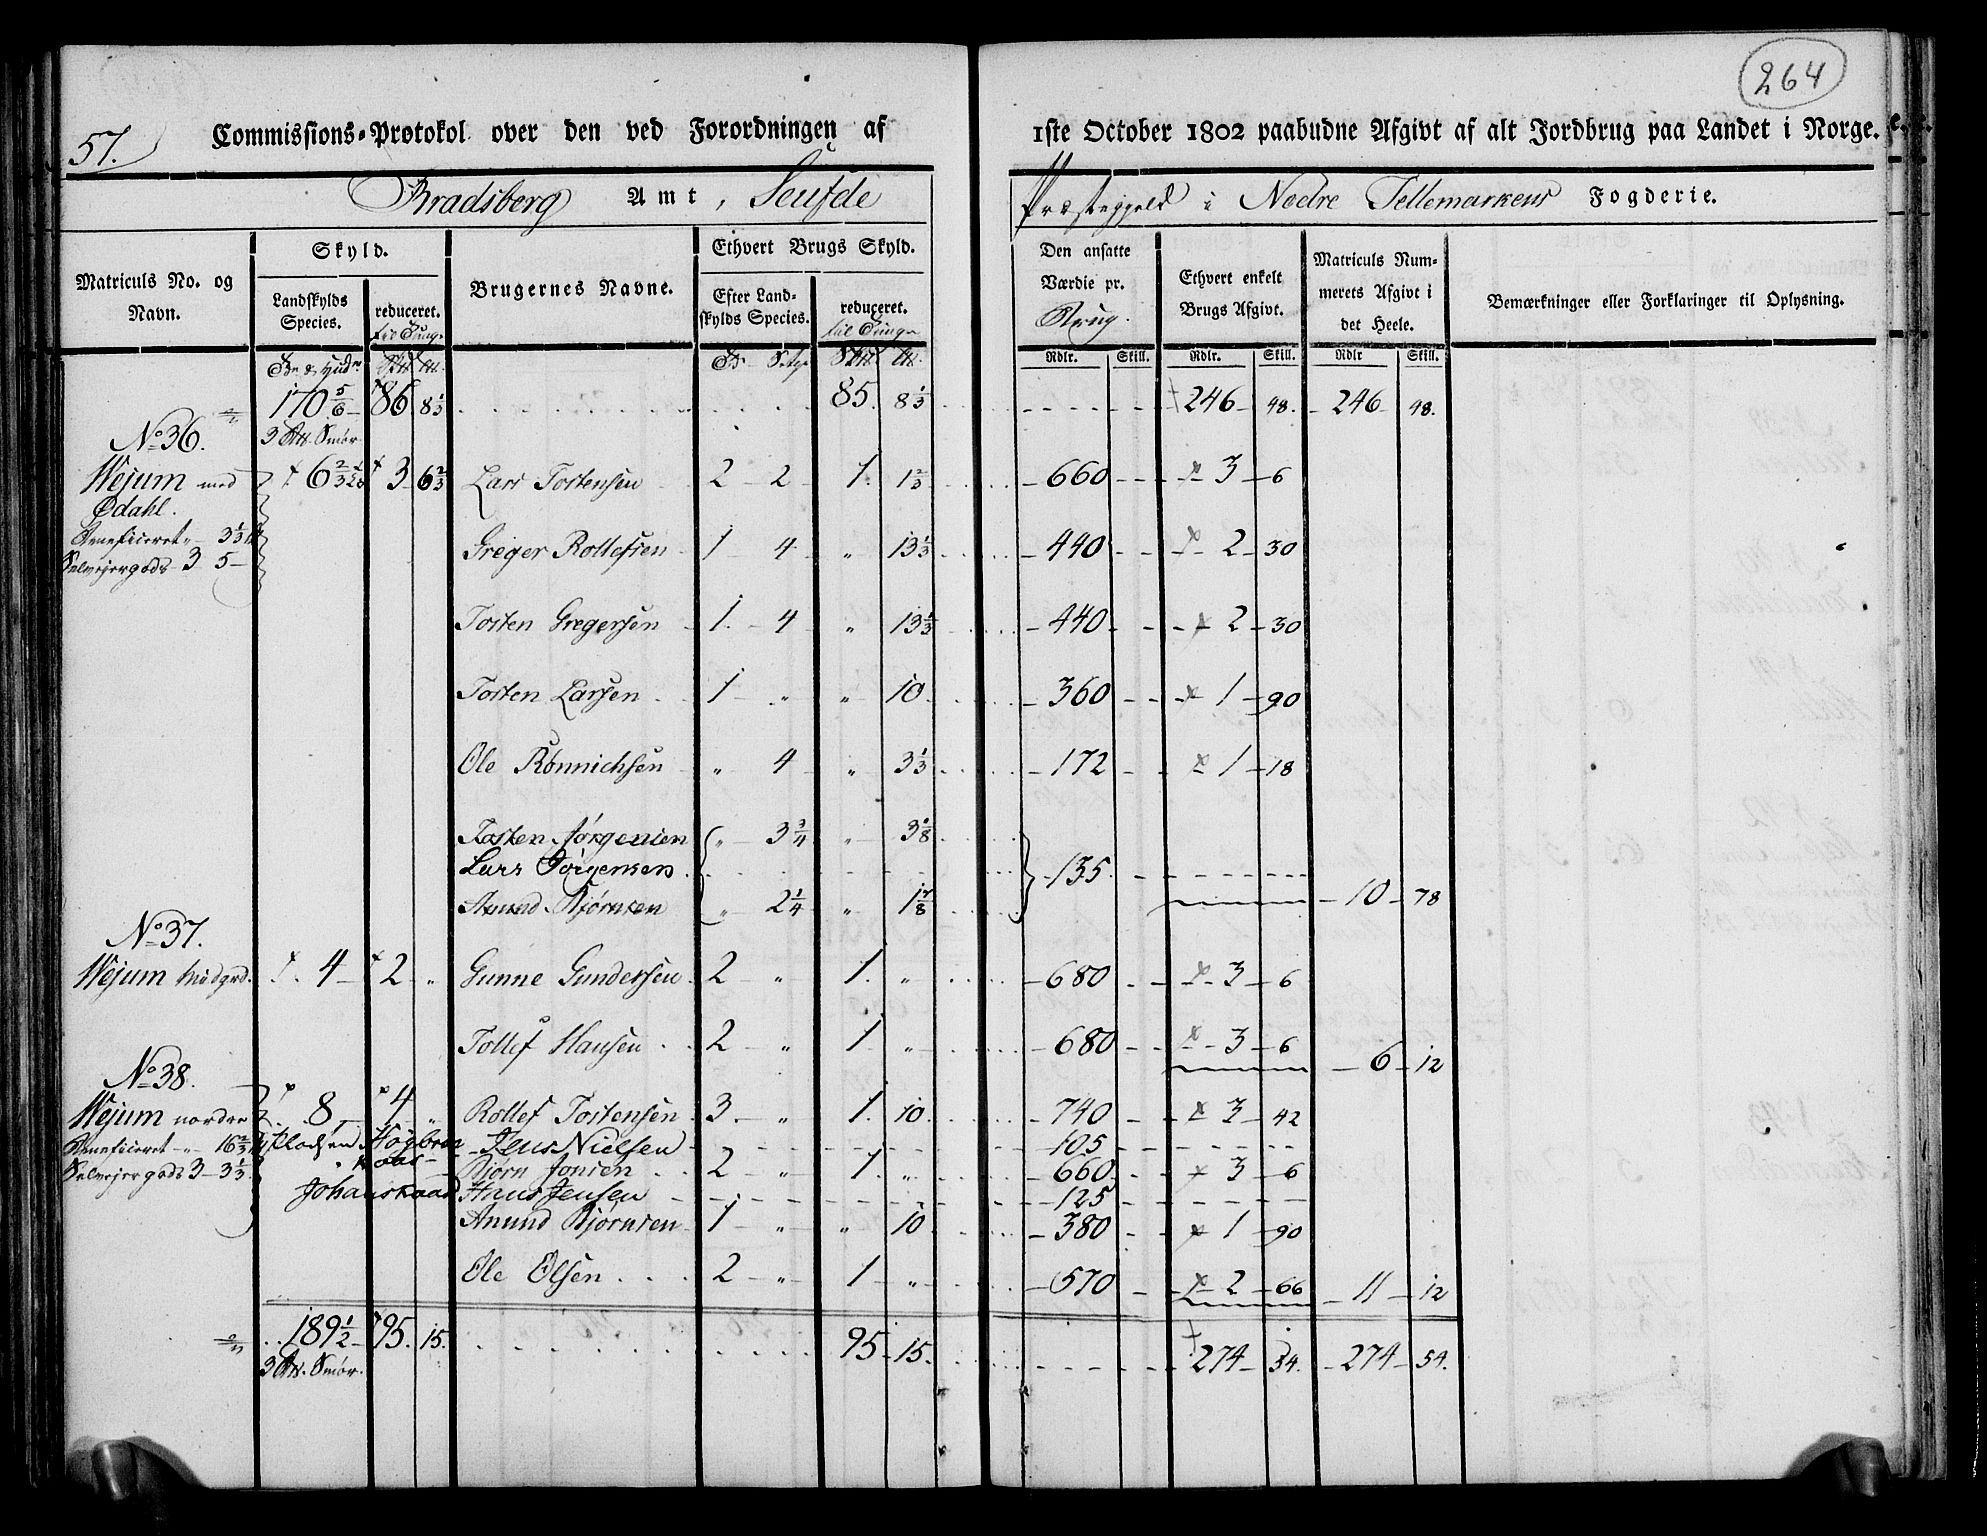 264
57. Commissions-Protokol over den ved Forordningen af 1ste October 1802 paabudne Afgivt af alt Jordbrug paa Landet i Norge.
Bradsberg Amt, Seufde Præsteggeld i Nedre Tellemarkens Fogderie.
Matriculs No. og Navn.
Skyld.
Landskylds Species.
reduceret. til Tunge
Brugernes Navne.
Ethvert Brugs Skyld.
Efter Landskylds Species.
reduceret. til Tunge
Den ansatte Værdie pr. Brug.
Ethvert enkelt Brugs Afgivt.
Matriculs Nummerets Afgivt i det Heele.
Bemærkninger eller Forklaringer til Oplysning.
Rdlr. Skill. Rdlr. Skill. Rdlr Skill.
170 5/6 86 8 1/3 85. 8 1/3 246 48. 246 48.
3 Smør
No 36.
Wejum med 6 2/3 3 6 2/3 Lars Tostensen 2 2 1. 1 2/3 660 3 6
Ødahl.
Beneficeret 3 1/3
Selvejergods 3 5
Greger Rollefsen 1 4 " 13 1/3 440 2 30
Tosten Gregersen 1. 4 " 13 1/3 440 2 30
Tosten Larsen 1 " " 10. 360 1 90
Ole Rönnichsen " 4 " 3 1/3 172 1 18
Tosten Jørgensen " 3 3/4 " 3 1/8
Lars Jörgensen 135.
Anund Bjørnsen " 2 1/4 " 1 7/8 10 78
No 37.
Wejum midgrd. 4 2 " Gunne Gundersen 2 " 1. " 680 3 6
Tollef Hansen 2 " 1 " 680 3 6 6 12
No 38.
Wejum nordre 8 4 " Rollef Tostensen 3. " 1. 10. 740 3 42
Beneficeret " 16 2/3 Pladsen Høgbroe Jens Nielsen 105
Selvejergods 3 3 1/3 Bjørn Jonsen 2 " 1. " 660 3 6
Johanskaas Hans Jensen 125
Anund Bjørnsen 1 " " 10 380 1 90
Ole Olsen 2 " 1 " 570 2 66 11 12
189 1/2 95. 15. 95 15. 274 54. 274 54.
3 Smør.